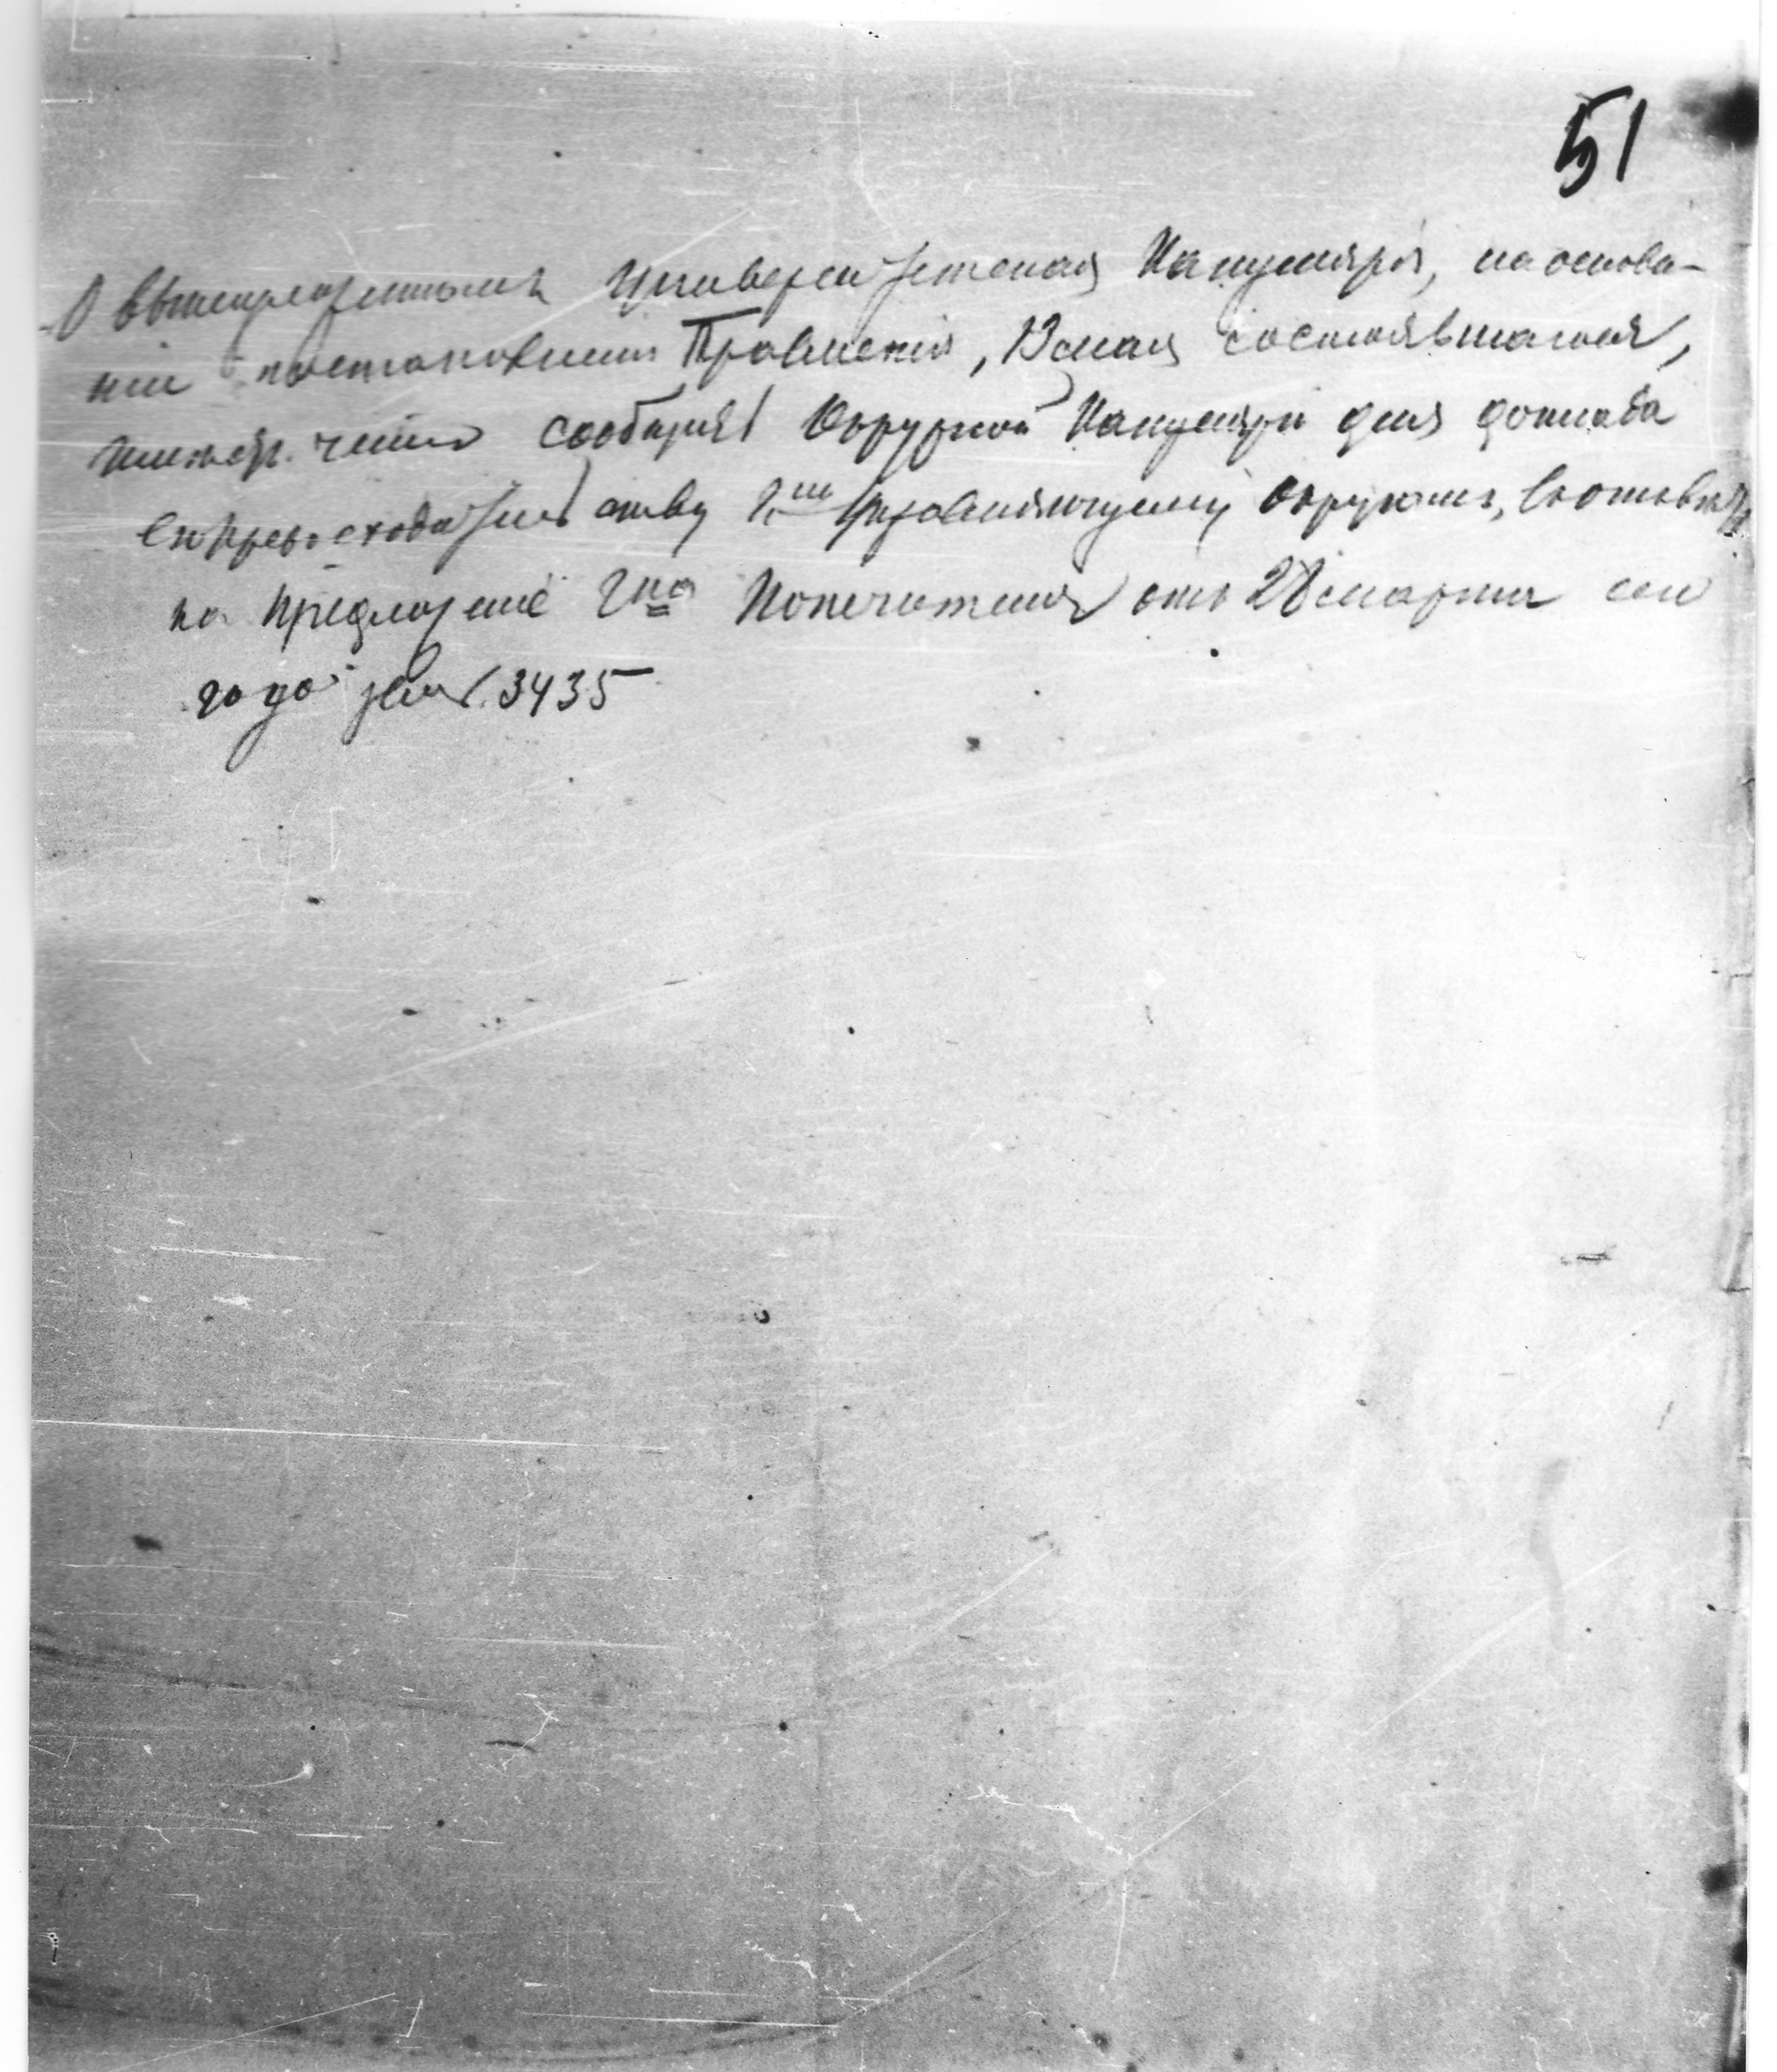 51
О вышеизложенномъ Университетская Канцелярія, на основа-
ніи постановленія Правленія, 13 мая состоявшагося,
честь сообщить Окружной Канцеляріи для доклада
Его Превосходительству Г.ну Управляющему Округомъ, въ отвѣтъ
на предложеніе Г-на Попечителя отъ 28 марта сего
года за № 3435